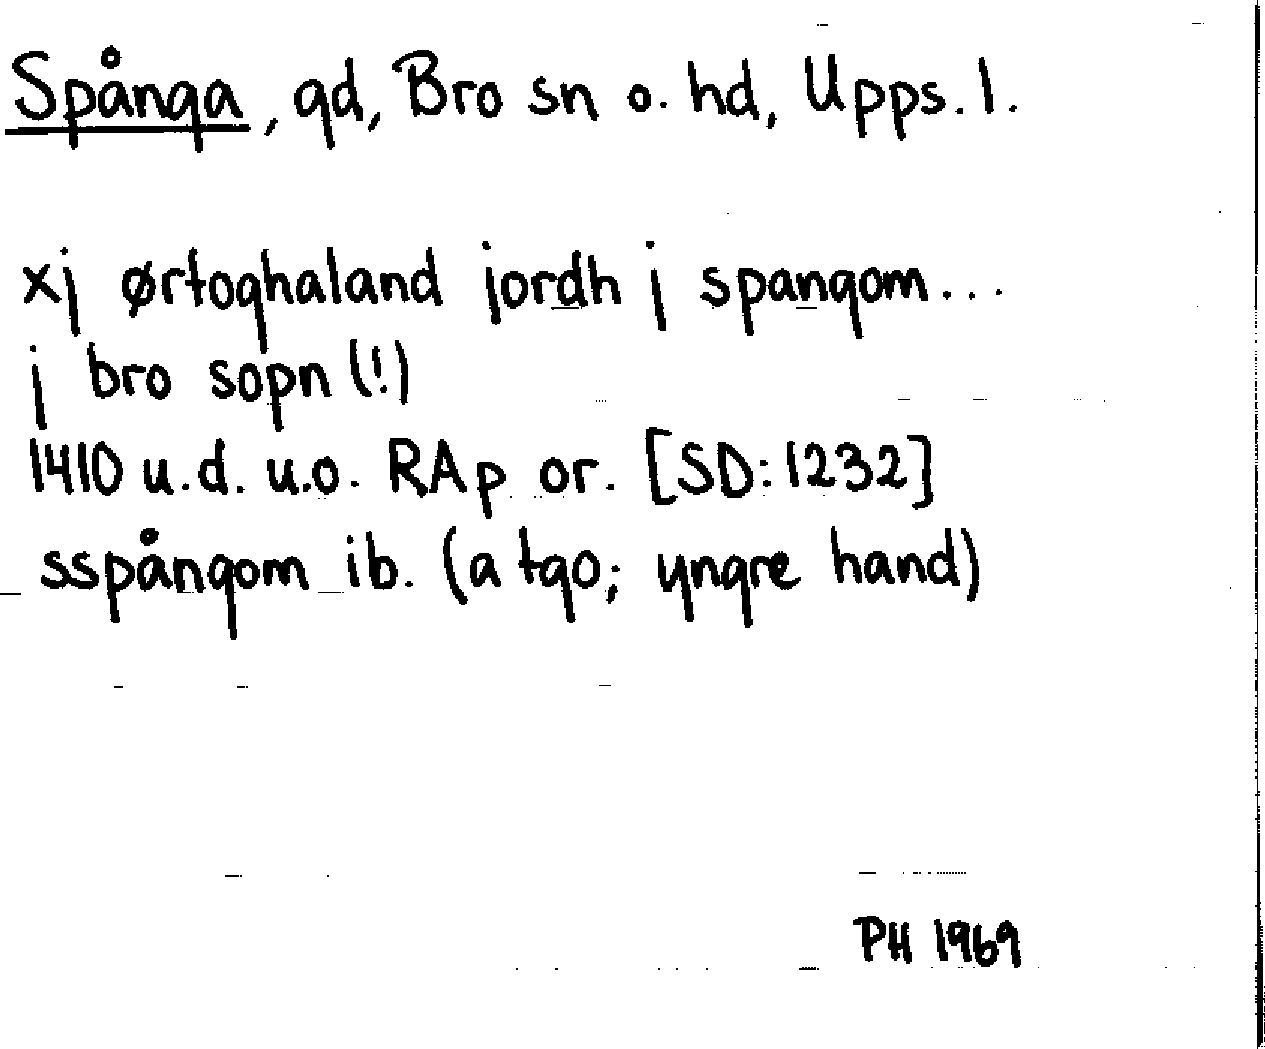 Spånga, gd, Bro sn o. hd, Upps. l.
xj ørtoghaland jordh j spangom...
j bro sopn (!)
1410 u.d. u.o. RAp or. [SD:1232]
sspångom ib. (a tgo; yngre hand)
PH 1969